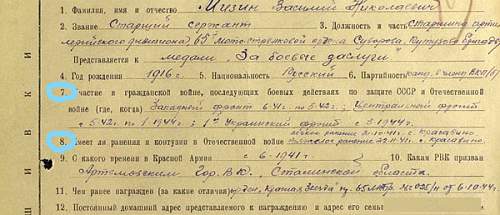 1. Фамилия, имя и отчество Чизин Василий Николаевич
2. Звание Старший сержант 3. Должность и часть Старшина арти-
лерийского дивизиона 65 мотострелковой ордена Суворова, Кутузова бригады
Представляется к медали "За боевые заслуги"
4. Год рождения 1916 г. 5. Национальность Русский 6. Партийность канд. в члены ВКП(б)
7. Участие в гражданской войне, последующих боевых действиях по защите СССР и Отечественной
войне (где, когда) Западный фронт 6.41 г. по 5.42 г.; Центральный фронт
с 5.42 г. по 1.1944 г.; 1й Украинский фронт с 3.1944 г.
8. Имеет ли ранения и контузии в Отечественной войне
9. С какого времени в Красной Армии с 6.1941 г. 10. Каким РВК призван
Артемовским гор. ВК, Сталинской области.
11. Чем ранее награжден (за какие отличия) орден "Красная Звезда" пр. 65 мсбр № 025/н от 6.10.44
12. Постоянный домашний адрес представляемого к награждению и адрес его семьи